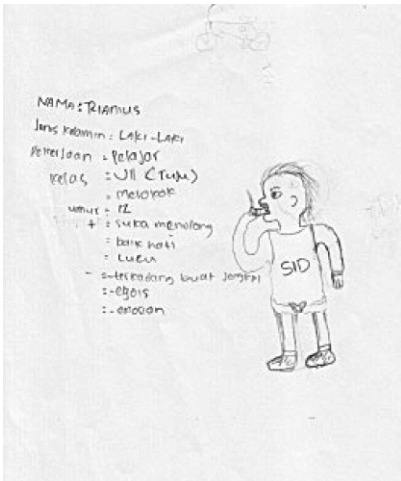 NAMA : RIAMUS
Jenis kelamin : LAKI-LAKI
Pekerjaan : Pelajar
kelas : VII (TUJU)
: merokok
umur : 12
+ : suka menolong
: baik hati
: Lucu
- :-terkadang buat jengkel
:-egois
:-emosian
SID